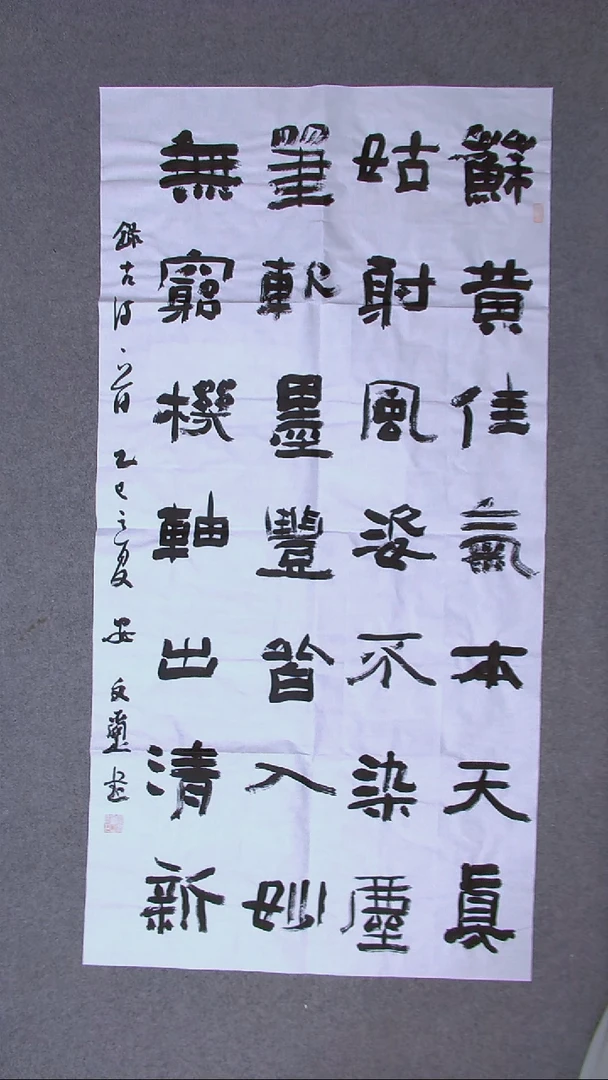 蘇黄佳氣本天真
姑射風姿不染塵
筆軟墨豐皆入妙
無窮機軸出清新
錄古詩一首 乙巳之夏 安文靈书